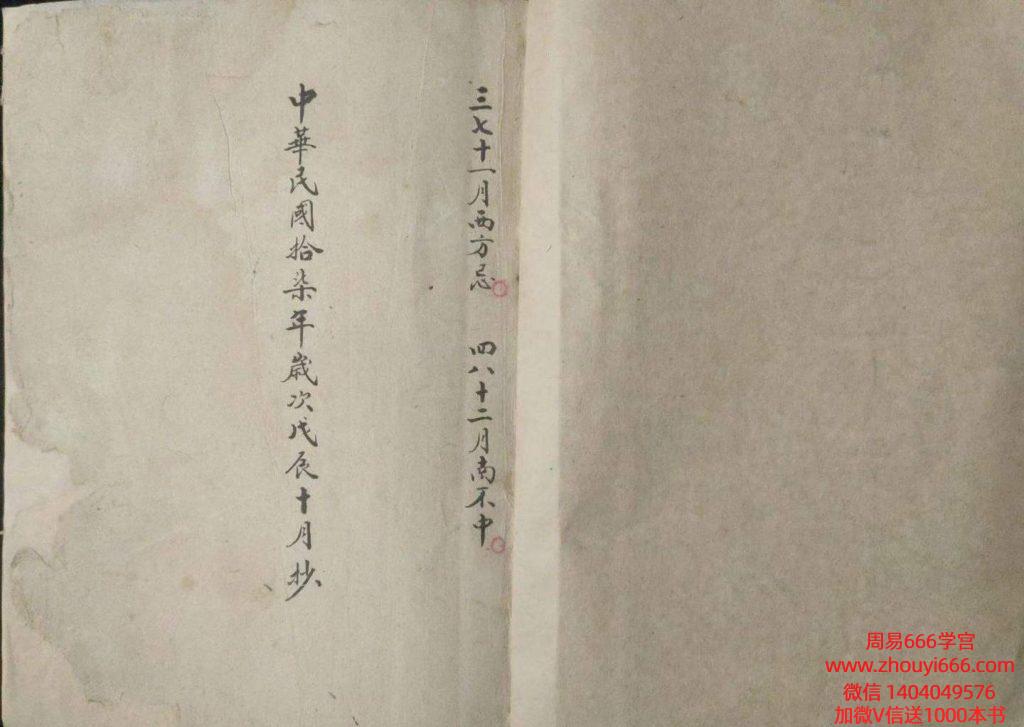 三七十一月西方忌
四八十二月南不中
中華民國拾柒年歲次戊辰十月抄
周易666学宫
www.zhouyi666.com
微信 1404049576
加微V信送1000本书